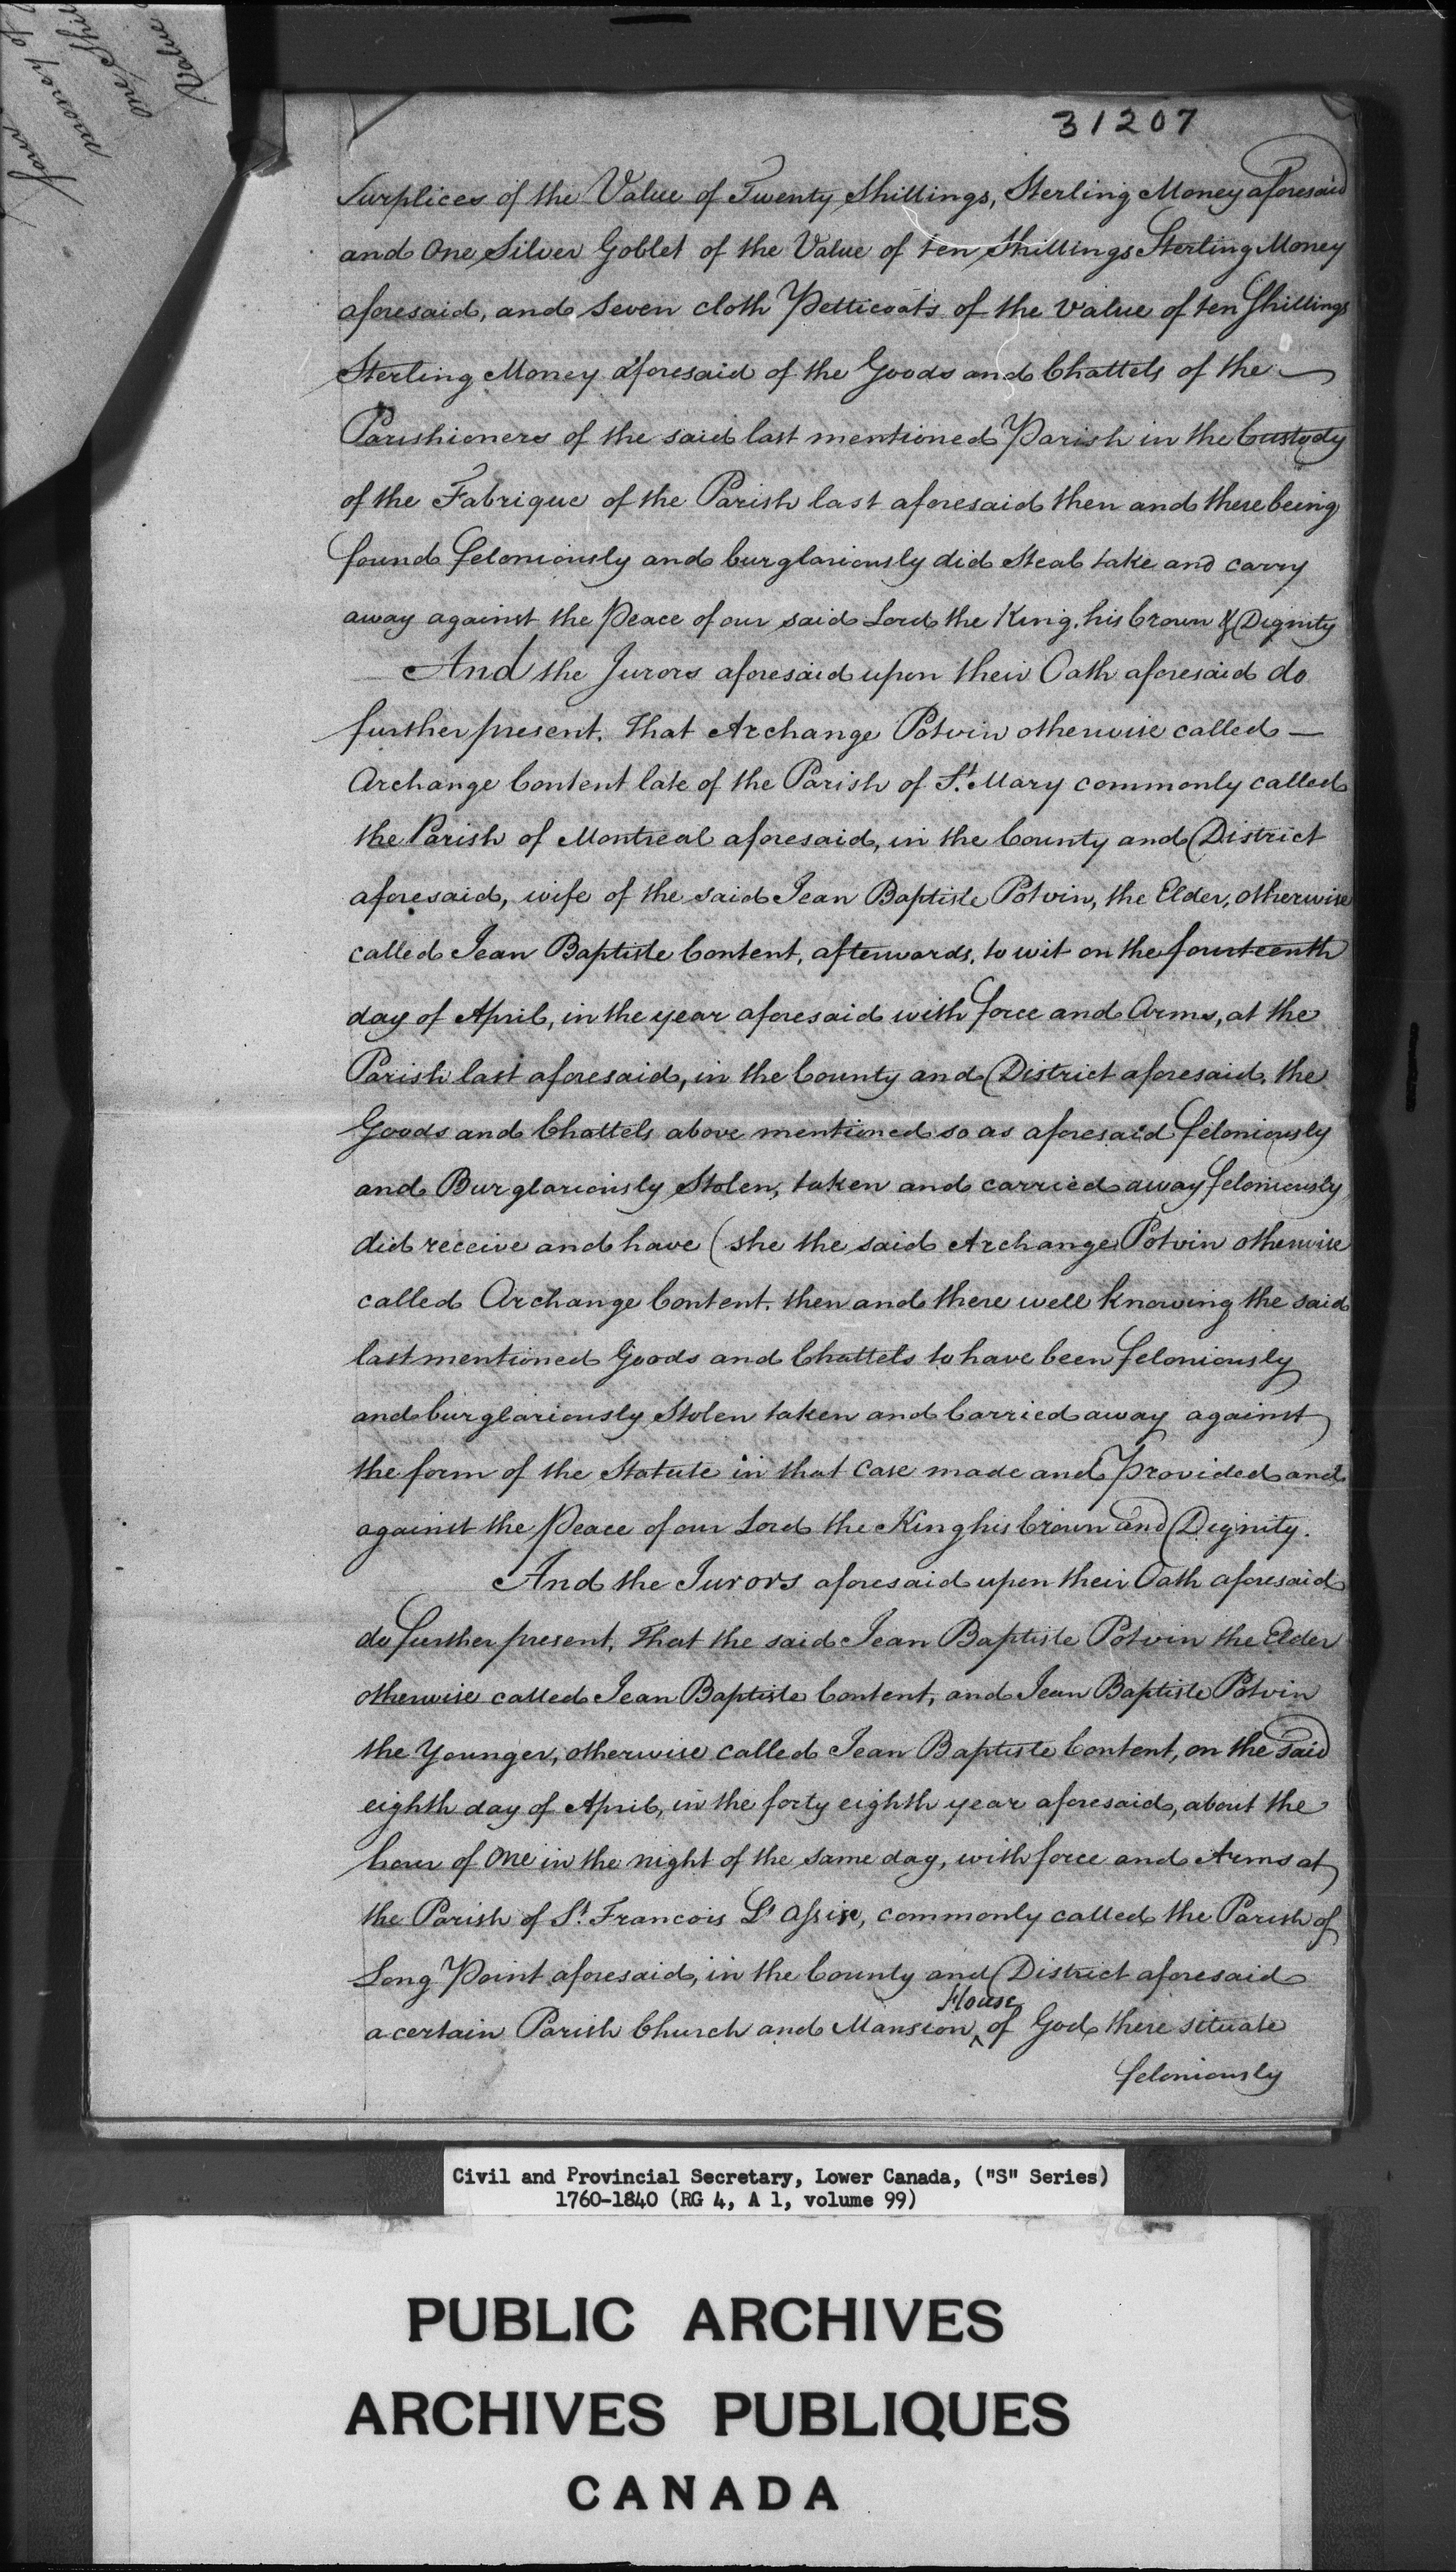 31207
Surplices of the Value of Twenty Shillings, Sterling Money aforesaid
and One Silver Goblet of the Value of ten Shillings Sterling Money
aforesaid, and Seven cloth Petticoats of the value of ten Shillings
Sterling Money aforesaid of the Goods and Chattels of the —
Parishioners of the said last mentioned Parish in the Custody
of the Fabrique of the Parish last aforesaid then and there being
found feloniously and burglariously did Steal take and carry
away against the Peace of our said Lord the King, his Crown & Dignity
And the Jurors aforesaid upon their Oath aforesaid do
further present, That Archange Potvin otherwise called —
Archange Content late of the Parish of St. Mary commonly called
the Parish of Montreal aforesaid, in the County and District
aforesaid, wife of the said Jean Baptiste Potvin, the Elder, otherwise
called Jean Baptiste Content, afterwards, to wit on the fourteenth
day of April, in the year aforesaid with force and Arms, at the
Parish last aforesaid, in the County and District aforesaid, the
Goods and Chattels above mentioned so as aforesaid feloniously
and Burglariously Stolen, taken and carried away feloniously
did receive and have (she the said Archange Potvin otherwise
called Archange Content, then and there well knowing the said
last mentioned Goods and Chattels to have been feloniously
and burglariously Stolen taken and Carried away against
the form of the Statute in that Case made and Provided and
against the Peace of our Lord the King his Crown and Dignity.
And the Jurors aforesaid upon their Oath aforesaid
do further present, That the said Jean Baptiste Potvin the Elder
otherwise called Jean Baptiste Content, and Jean Baptiste Potvin
the Younger, otherwise called Jean Baptiste Content, on the said
eighth day of April, in the forty eighth year aforesaid, about the
hour of One in the night of the same day, with force and Arms at
the Parish of St. Francois D'assise, commonly called the Parish of
Long Point aforesaid, in the County and District aforesaid
a certain Parish Church and Mansion House of God there situate
feloniously
money of
One Shill
Value
Civil and Provincial Secretary, Lower Canada, ("S" Series)
1760-1840 (RG 4, A 1, volume 99)
PUBLIC ARCHIVES
ARCHIVES PUBLIQUES
CANADA